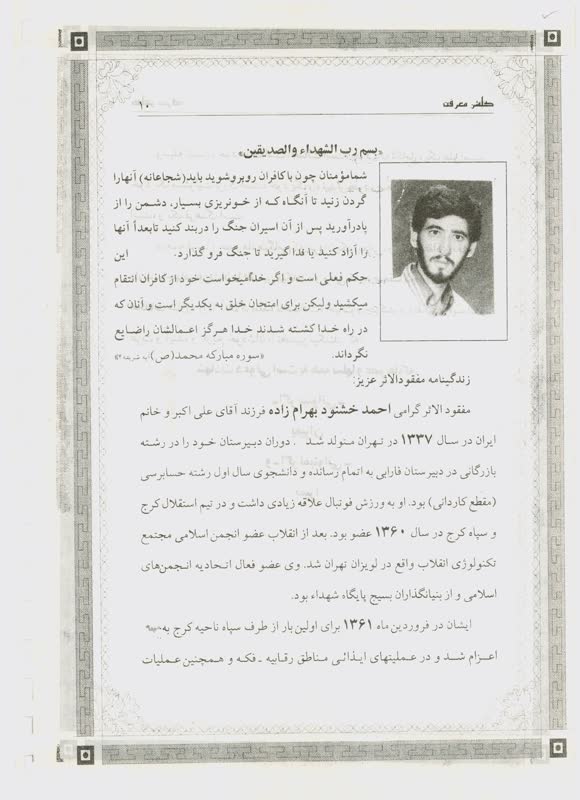 گلشن معرفت
۱۰
«بسم رب الشهداء والصدیقین»
شما مؤمنان چون با کافران روبرو شوید باید (شجاعانه) آنها را
گردن زنید تا آنگاه که از خونریزی بسیار، دشمن را از
پا درآورید پس از آن اسیران جنگ را در بند کنید تا بعداً آنها
را آزاد کنید یا فدا گیرید تا جنگ فرو گذارد. این
حکم فعلی است و اگر خدا میخواست خود از کافران انتقام
میکشید ولیکن برای امتحان خلق به یکدیگر است و آنان که
در راه خدا کشته شدند خدا هرگز اعمالشان را ضایع
نگرداند. «سوره مبارکه محمد(ص)
زندگینامه مفقودالاثر عزیز:
مفقود الاثر گرامی احمد خشنود بهرام زاده فرزند آقای علی اکبر و خانم
ایران در سال ۱۳۳۷ در تهران متولد شد . دوران دبیرستان خود را در رشته
بازرگانی در دبیرستان فارابی به اتمام رسانده و دانشجوی سال اول رشته حسابرسی
(مقطع کاردانی) بود. او به ورزش فوتبال علاقه زیادی داشت و در تیم استقلال کرج
و سپاه کرج در سال ۱۳۶۰ عضو بود. بعد از انقلاب عضو انجمن اسلامی مجتمع
تکنولوژی انقلاب واقع در لویزان تهران شد. وی عضو فعال اتحادیه انجمن‌های
اسلامی و از بنیانگذاران بسیج پایگاه شهداء بود.
ایشان در فروردین ماه ۱۳۶۱ برای اولین بار از طرف سپاه ناحیه کرج به جبهه
اعزام شد و در عملیتهای ایذائی مناطق رقابیه ـ فکه و همچنین عملیات